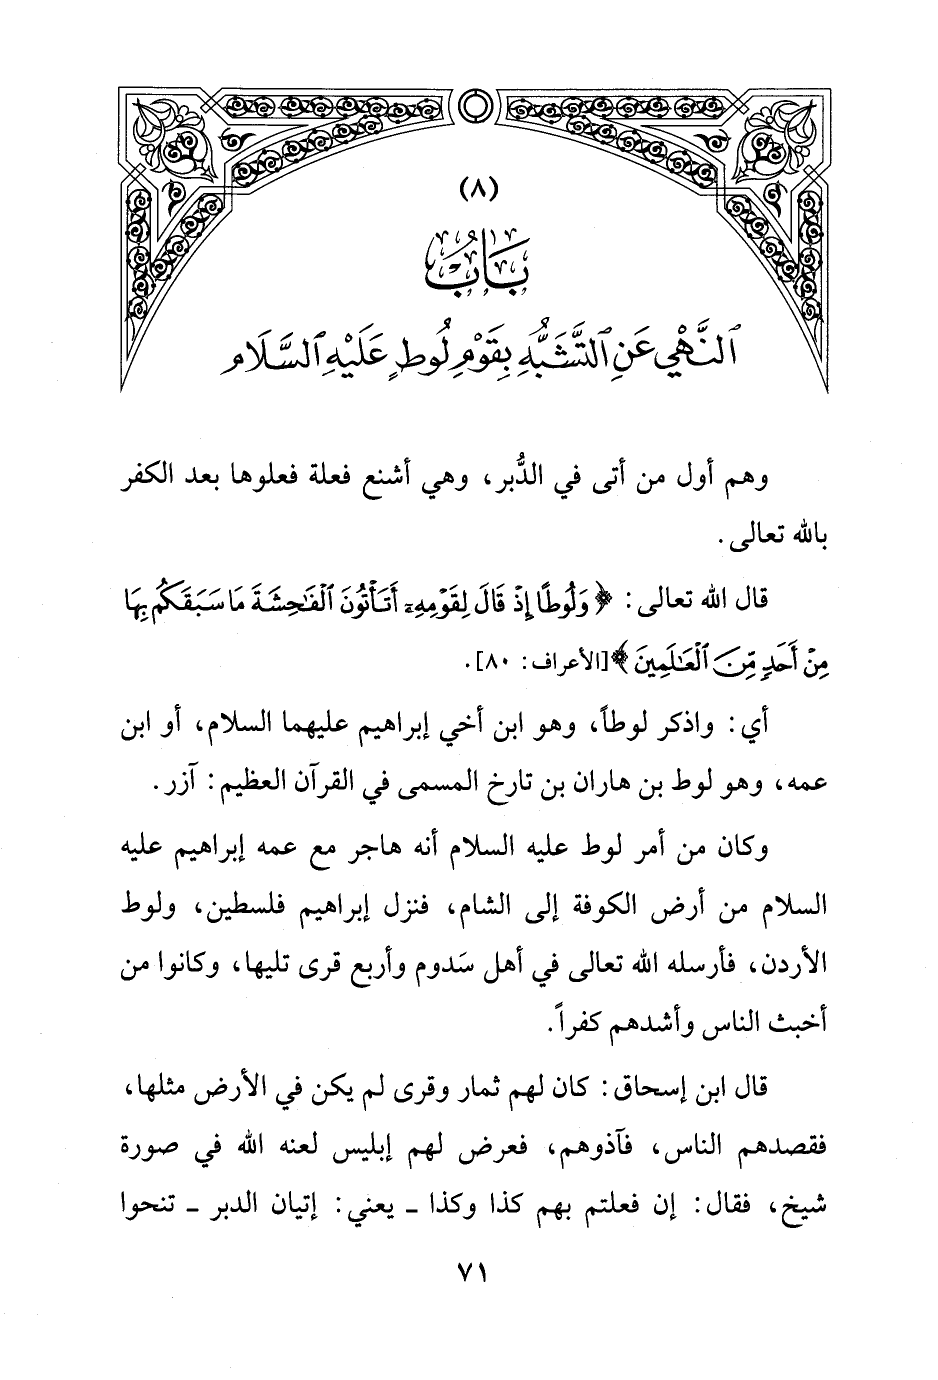 (٨)
بَابُ
النَّهْيِ عَنِ التَّشَبُّهِ بِقَوْمِ لُوطٍ عَلَيْهِ السَّلَام
وهم أول من أتى في الدُّبر، وهي أشنع فعلة فعلوها بعد الكفر
بالله تعالى.
قال الله تعالى: ﴿وَلُوطًا إِذْ قَالَ لِقَوْمِهِۦٓ أَتَأْتُونَ ٱلْفَٰحِشَةَ مَا سَبَقَكُم بِهَا
مِنْ أَحَدٍ مِّنَ ٱلْعَٰلَمِينَ﴾ [الأعراف: ٨٠].
أي: واذكر لوطاً، وهو ابن أخي إبراهيم عليهما السلام، أو ابن
عمه، وهو لوط بن هاران بن تارخ المسمى في القرآن العظيم: آزر.
وكان من أمر لوط عليه السلام أنه هاجر مع عمه إبراهيم عليه
السلام من أرض الكوفة إلى الشام، فنزل إبراهيم فلسطين، ولوط
الأردن، فأرسله الله تعالى في أهل سَدوم وأربع قرى تليها، وكانوا من
أخبث الناس وأشدهم كفراً.
قال ابن إسحاق: كان لهم ثمار وقرى لم يكن في الأرض مثلها،
فقصدهم الناس، فآذوهم، فعرض لهم إبليس لعنه الله في صورة
شيخ، فقال: إن فعلتم بهم كذا وكذا ـ يعني: إتيان الدبر ـ تنحوا
٧١